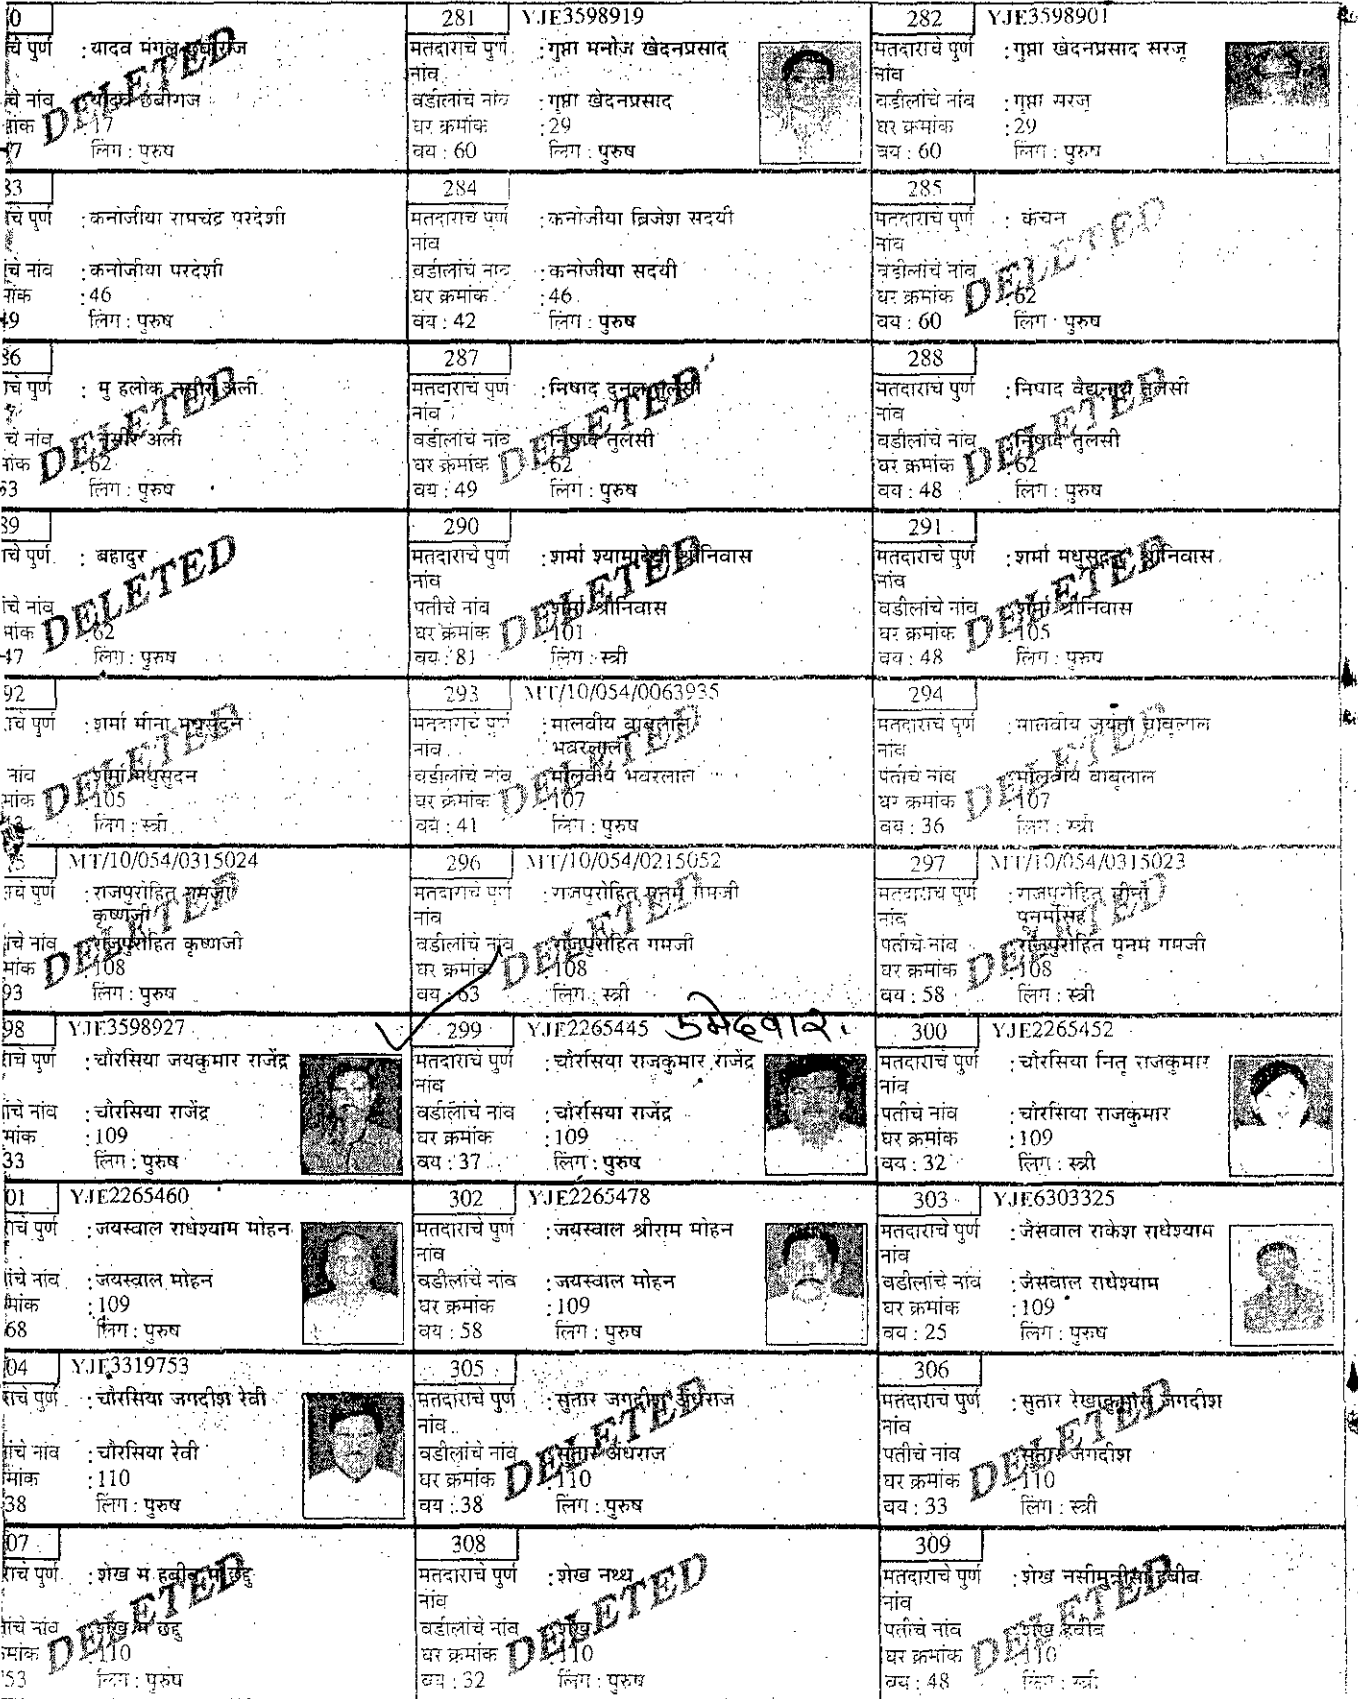 0
चे पुर्ण : यादव मंगल छबीराज
चे नांव : यादव छबीराज
ांक : 17
7 लिंग : पुरुष
DELETED
281 YJE3598919
मतदाराचे पुर्ण : गुप्ता मनोज खेदनप्रसाद
नांव
वडीलांचे नांव : गुप्ता खेदनप्रसाद
घर क्रमांक : 29
वय : 60 लिंग : पुरुष
282 YJE3598901
मतदाराचे पुर्ण : गुप्ता खेदनप्रसाद सरजू
नांव
वडीलांचे नांव : गुप्ता सरजू
घर क्रमांक : 29
वय : 60 लिंग : पुरुष
83
चे पुर्ण : कनोजीया रामचंद्र परदेशी
चे नांव : कनोजीया परदेशी
ांक : 46
49 लिंग : पुरुष
284
मतदाराचे पुर्ण : कनोजीया ब्रिजेश सदयी
नांव
वडीलांचे नांव : कनोजीया सदयी
घर क्रमांक : 46
वय : 42 लिंग : पुरुष
285
मतदाराचे पुर्ण : कंचन
नांव
वडीलांचे नांव
घर क्रमांक : 62
वय : 60 लिंग : पुरुष
DELETED
86
चे पुर्ण : मु हलोक नसीर अली
चे नांव : नसीर अली
ांक : 62
53 लिंग : पुरुष
DELETED
287
मतदाराचे पुर्ण : निषाद तुलसी
नांव
वडीलांचे नांव : निषाद तुलसी
घर क्रमांक : 62
वय : 49 लिंग : पुरुष
DELETED
288
मतदाराचे पुर्ण : निषाद वैद्यनाथ तुलसी
नांव
वडीलांचे नांव : निषाद तुलसी
घर क्रमांक : 62
वय : 48 लिंग : पुरुष
DELETED
89
चे पुर्ण : बहादुर
चे नांव
मांक : 62
47 लिंग : पुरुष
DELETED
290
मतदाराचे पुर्ण : शर्मा श्यामादेवी श्रीनिवास
नांव
पतीचे नांव : शर्मा श्रीनिवास
घर क्रमांक : 101
वय : 81 लिंग : स्त्री
DELETED
291
मतदाराचे पुर्ण : शर्मा मधुसुदन श्रीनिवास
नांव
वडीलांचे नांव : शर्मा श्रीनिवास
घर क्रमांक : 105
वय : 48 लिंग : पुरुष
DELETED
92
चे पुर्ण : शर्मा मीना मधुसुदन
नांव : शर्मा मधुसुदन
मांक : 105
लिंग : स्त्री
DELETED
293 MT/10/054/0063935
मतदाराचे पुर्ण : मालवीय बाबुलाल
नांव भवरलाल
वडीलांचे नांव : मालवीय भवरलाल
घर क्रमांक : 107
वय : 41 लिंग : पुरुष
DELETED
294
मतदाराचे पुर्ण : मालवीय जयंता बाबुलाल
नांव
पतीचे नांव : मालवीय बाबुलाल
घर क्रमांक : 107
वय : 36 लिंग : स्त्री
DELETED
95 MT/10/054/0315024
चे पुर्ण : राजपुरोहित गमजी
कृष्णजी
चे नांव : राजपुरोहित कृष्णजी
मांक : 108
93 लिंग : पुरुष
DELETED
296 MT/10/054/0215052
मतदाराचे पुर्ण : राजपुरोहित पुनम गमजी
नांव
वडीलांचे नांव : राजपुरोहित गमजी
घर क्रमांक : 108
वय : 63 लिंग : स्त्री
DELETED
297 MT/10/054/0315023
मतदाराचे पुर्ण : राजपुरोहित
नांव पुनमसिह
पतीचे नांव : राजपुरोहित पुनम गमजी
घर क्रमांक : 108
वय : 58 लिंग : स्त्री
DELETED
98 YJE3598927
चे पुर्ण : चौरसिया जयकुमार राजेंद्र
चे नांव : चौरसिया राजेंद्र
मांक : 109
33 लिंग : पुरुष
299 YJE2265445 उमेदवार.
मतदाराचे पुर्ण : चौरसिया राजकुमार राजेंद्र
नांव
वडीलांचे नांव : चौरसिया राजेंद्र
घर क्रमांक : 109
वय : 37 लिंग : पुरुष
300 YJE2265452
मतदाराचे पुर्ण : चौरसिया नितू राजकुमार
नांव
पतीचे नांव : चौरसिया राजकुमार
घर क्रमांक : 109
वय : 32 लिंग : स्त्री
01 YJE2265460
चे पुर्ण : जयस्वाल राधेश्याम मोहन
चे नांव : जयस्वाल मोहन
मांक : 109
68 लिंग : पुरुष
302 YJE2265478
मतदाराचे पुर्ण : जयस्वाल श्रीराम मोहन
नांव
वडीलांचे नांव : जयस्वाल मोहन
घर क्रमांक : 109
वय : 58 लिंग : पुरुष
303 YJE6303325
मतदाराचे पुर्ण : जैसवाल राकेश राधेश्याम
नांव
वडीलांचे नांव : जैसवाल राधेश्याम
घर क्रमांक : 109
वय : 25 लिंग : पुरुष
04 YJE3319753
चे पुर्ण : चौरसिया जगदीश रेवी
चे नांव : चौरसिया रेवी
मांक : 110
38 लिंग : पुरुष
305
मतदाराचे पुर्ण : सुतार जगदीश अंधराज
नांव
वडीलांचे नांव : सुतार अंधराज
घर क्रमांक : 110
वय : 38 लिंग : पुरुष
DELETED
306
मतदाराचे पुर्ण : सुतार रेखाकुमारी जगदीश
नांव
पतीचे नांव : सुतार जगदीश
घर क्रमांक : 110
वय : 33 लिंग : स्त्री
DELETED
07
चे पुर्ण : शेख म हबीब म छद्दु
चे नांव : शेख म छद्दु
मांक : 110
53 लिंग : पुरुष
DELETED
308
मतदाराचे पुर्ण : शेख नथ्थ
नांव
वडीलांचे नांव : शेख
घर क्रमांक : 110
वय : 32 लिंग : पुरुष
DELETED
309
मतदाराचे पुर्ण : शेख नसीमुन्नीसा हबीब
नांव
पतीचे नांव : शेख हबीब
घर क्रमांक : 110
वय : 48 लिंग : स्त्री
DELETED